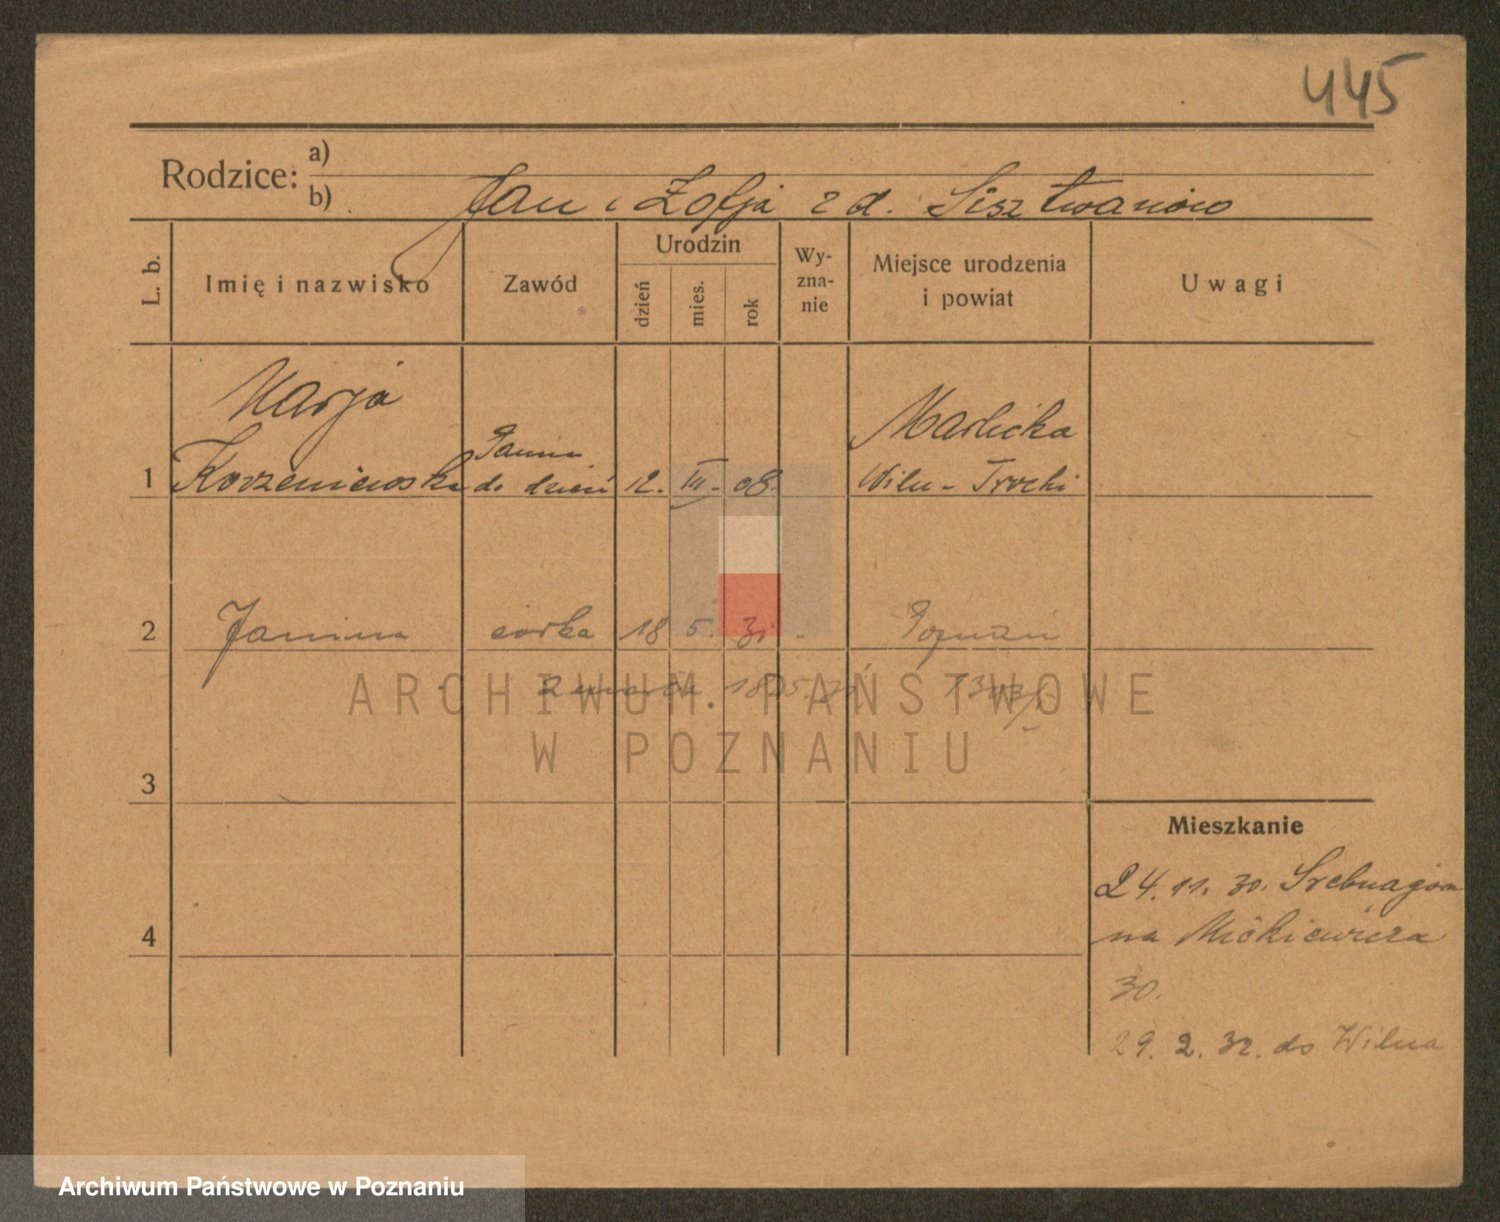 445
Rodzice: a)
b) Jan i Zofja z d. Sisztwanów
L. b. Imię i nazwisko Zawód Urodzin dzień mies. rok Wy-zna-nie Miejsce urodzenia i powiat Uwagi
Marja
Panna Marlicka
1 Korzeniewska do dzieci 12. III. 08. Wilu - Trocki
2 Janina córka 18 5. 31 - Poznań
zmarła 18.5.31
ARCHIWUM PAŃSTWOWE
W POZNANIU
3
Mieszkanie
24. 11. 30. Srebrnagóra
4
na Mickiewicza
30.
29. 2. 32. do Wilna
Archiwum Państwowe w Poznaniu